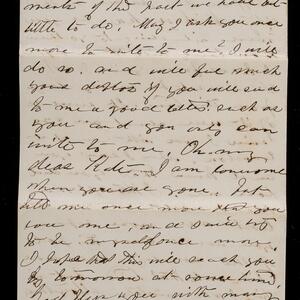 ments of the past we have but
little to do. May I ask you once
more to write to me? I will
do so. and will feel much
your debtor if you will send
to me a good letter such as
you and you only can
write to me. Oh my
dear Kate. I am lonesome
when you are gone. but
tell me once more that you
love me, and swear it
to be once more
I hope that this will reach you
by tomorrow at some time
God bless you with many